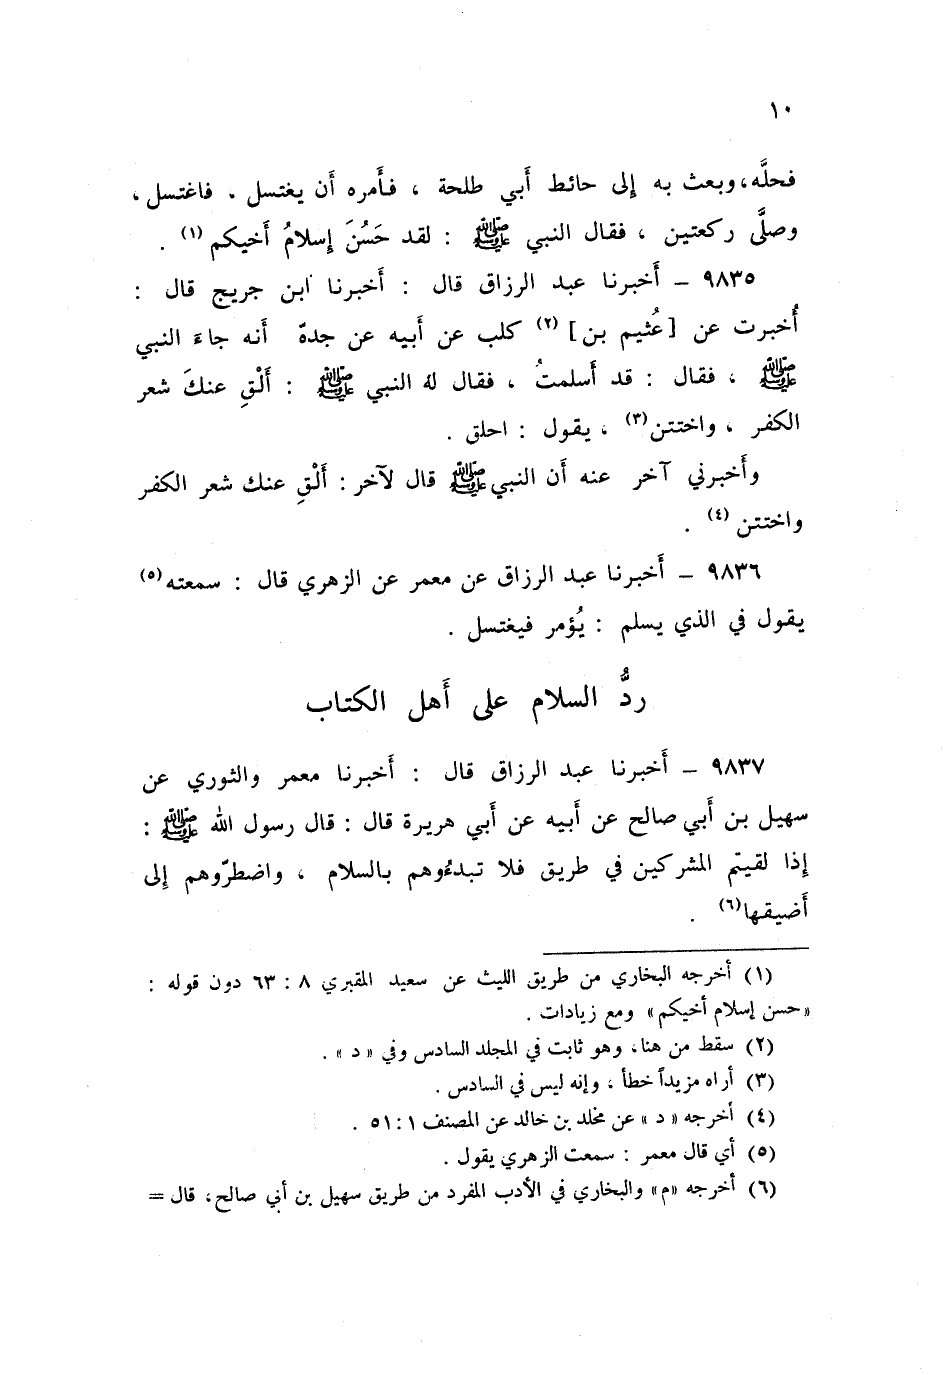 ١٠
فحلَّه، وبعث به إلى حائط أَبي طلحة ، فأَمره أَن يغتسل ، فاغتسل ،
وصلَّى ركعتين ، فقال النبي ﷺ : لقد حَسُنَ إسلامُ أَخيكم (١) .
٩٨٣٥ – أَخبرنا عبد الرزاق قال : أَخبرنا ابن جريج قال :
أُخبرت عن [عُثيم بن] (٢) كلب عن أَبيه عن جدهّ أَنه جاءَ النبي
ﷺ ، فقال : قد أَسلمتُ ، فقال لهُ النبي ﷺ : أَلْقِ عنكَ شعر
الكفر ، واختتن(٣) ، يقول : احلق .
وأَخبرني آخر عنه أَن النبي ﷺ قال لآخر : أَلْقِ عنك شعر الكفر
واختتن (٤) .
٩٨٣٦ – أَخبرنا عبد الرزاق عن معمر عن الزهري قال : سمعته(٥)
يقول في الذي يسلم : يُؤمر فيغتسل .
ردُّ السلام على أَهل الكتاب
٩٨٣٧ – أَخبرنا عبد الرزاق قال : أَخبرنا معمر والثوري عن
سهيل بن أَبي صالح عن أَبيه عن أَبي هريرة قال : قال رسول الله ﷺ :
إذا لقيتم المشركين في طريق فلا تبدءُوهم بالسلام ، واضطرّوهم إلى
أَضيقها(٦) .
(١) أخرجه البخاري من طريق الليث عن سعيد المقبري ٨ : ٦٣ دون قوله :
«حسن إسلام أخيكم» ومع زيادات .
(٢) سقط من هنا، وهو ثابت في المجلد السادس وفي «د» .
(٣) أراه مزيداً خطأ ، وإنه ليس في السادس .
(٤) أخرجه «د» عن مخلد بن خالد عن المصنف ١ : ٥١ .
(٥) أي قال معمر : سمعت الزهري يقول .
(٦) أخرجه «م» والبخاري في الأدب المفرد من طريق سهيل بن أبي صالح، قال =